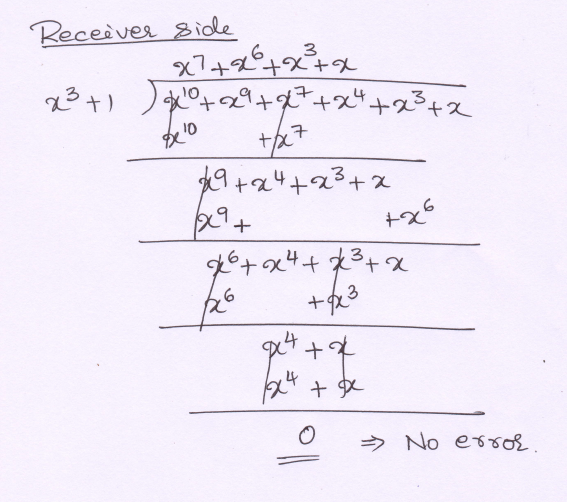 Receiver side
x⁷+x⁶+x³+x
x³+1 ) x¹⁰+x⁹+x⁷+x⁴+x³+x
x¹⁰ +x⁷
x⁹+x⁴+x³+x
x⁹+ +x⁶
x⁶+x⁴+x³+x
x⁶ +x³
x⁴+x
x⁴+x
0 ⇒ No error.